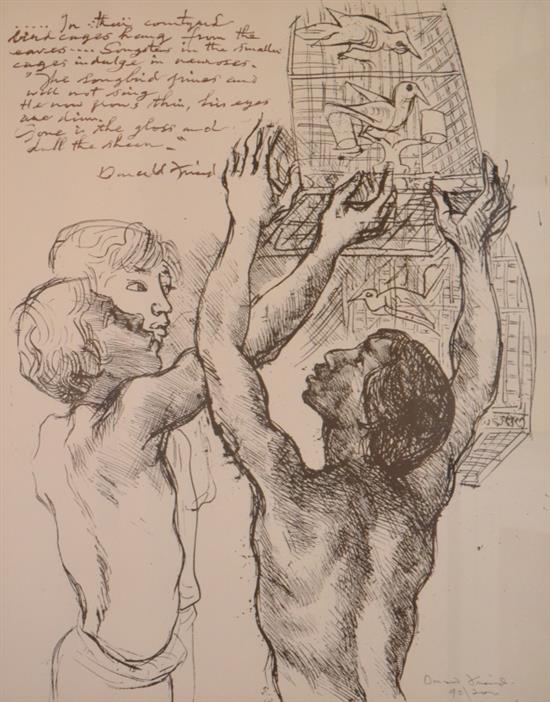 ..... In their courtyard
bird cages hang from the
eaves.... Songsters in the smaller
cages indulge in neuroses.
"The songbird pines and
will not sing.
He now grows thin, his eyes
are dim.
Gone is the gloss and
dull the sheen."
Donald Friend
Donald Friend.
90/200